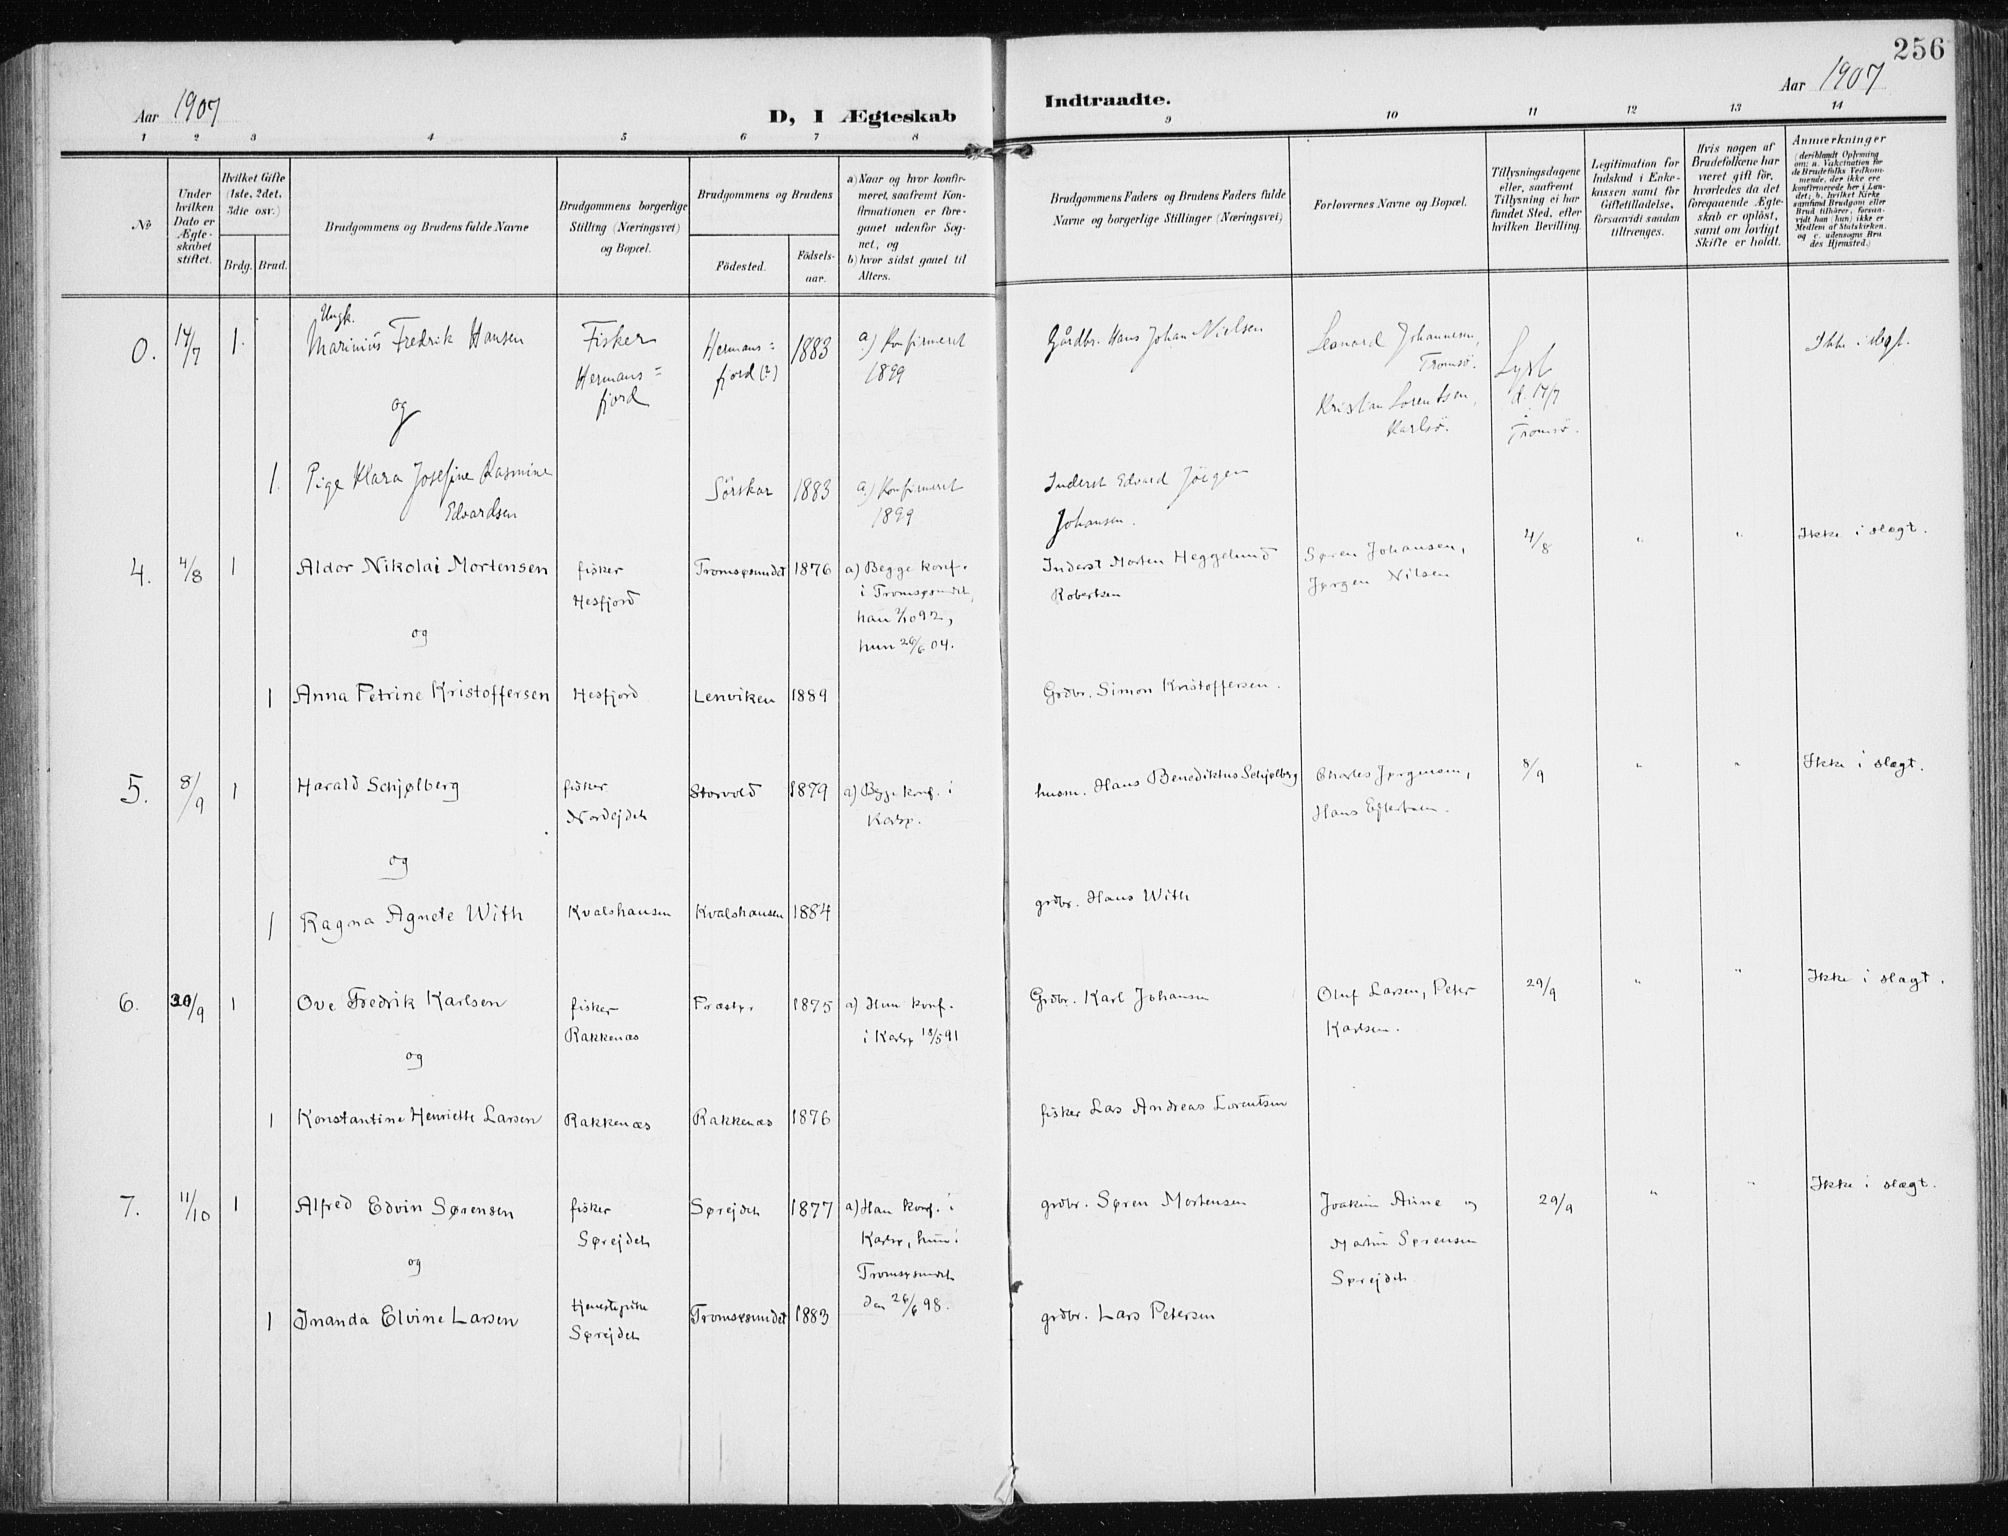 256
Aar 1907
D, I Ægteskab
Indtraadte.
Aar 1907
1 2 3 4 5 6 7 8 9 10 11 12 13 14
No
Under hvilken Dato er Ægteskabet stiftet.
Hvilket Gifte (1ste, 2det, 3die osv.)
Brdg. Brud.
Brudgommens og Brudens fulde Navne
Brudgommens borgerlige Stilling (Næringsvei) og Bopæl.
Brudgommens og Brudens
Födested.
Födselsaar.
a) Naar og hvor konfirmeret, saafremt Konfirmationen er foregaaet udenfor Sognet, og
b) hvor sidst gaaet til Alters.
Brudgommens Faders og Brudens Faders fulde Navne og borgerlige Stillinger (Næringsvei)
Forlovernes Navne og Bopæl.
Tillysningsdagene eller, saafremt Tillysning ei har fundet Sted, efter hvilken Bevilling.
Legitimation for Indskud i Enkekassen samt for Giftetilladelse, forsaavidt saadan tiltrænges.
Hvis nogen af Brudefolkene har været gift før, hvorledes da det foregaaende Ægteskab er oplöst, samt om lovligt Skifte er holdt.
Anmærkninger
(deriblandt Oplysning om: a. Vakcination for de Brudefolks Vedkommende, der ikke ere konfirmerede her i Landet; b. hvilket Kirkesamfund Brudgom eller Brud tilhörer, forsaavidt han (hun) ikke er Medlem af Statskirken, og c. udensogns Brudes Hjemsted.)
0. 14/7 1. Ungk. Marinius Fredrik Hansen
Fisker Hermansfjord
Hermans=fjord (?) 1883
a) Konfirmeret 1899
Gårdbr. Hans Johan Nielsen
Leonard Johannesen, Tromsö.
Kristian Lorentsen, Karlsö.
Lyst d. 14/7 i Tromsö.
Ikke i slegt.
og
1. Pige Klara Josefine Rasmine Edvardsen
Sörskar 1883
a.) Konfirmeret 1899
Inderst Edvard Jörgen Johansen.
4. 4/8 1 Aldor Nikolai Mortensen
fisker Hesfjord
Tromsøsundet 1876
a) Begge konf. i Tromsøsundet, han 2/10 92, hun 26/6 04.
Inderst Morten Heggelund Robertsen
Søren Johansen, Jørgen Nilsen
4/8 " " Ikke i slægt.
og
1 Anna Petrine Kristoffersen Hesfjord Lenviken 1889
Grdbr. Simon Kristoffersen.
5. 8/9 1 Harald Schjølberg
fisker Nordejdet
Storvold 1879
a) Begge konf. i Karlsø.
husm. Hans Benediktus Schjølberg
Charles Jørgensen, Hans Eftertsen.
8/9 " " Ikke i slægt.
og
1 Ragna Agnete With Kvalshausen Kvalshausen 1884
grdbr. Hans With
6. 30/9 1 Ove Fredrik Karlsen
fisker Rakkenæs
1875
a) Hun konf. i Karlsø 18/5 91
Grdbr. Karl Johansen
Oluf Larsen, Peter Karlsen.
29/9 " " Ikke i slægt.
og
1 Konstantine Henriette Larsen Rakkenæs Rakkenæs 1876
fisker Lars Andreas Lorentsen
7. 11/10 1 Alfred Edvin Sørensen
fisker Sørejdet
Sørejdet 1877
a) Han konf. i Karlsø, hun i Tromsøsundet den 26/6 98.
grdbr. Søren Mortensen
Joakim Aune og Martin Sørensen Sørejdet
29/9 " " Ikke i slægt.
og
1 Inanda Elvine Larsen
tjenestepike Sørejdet
Tromsøsundet 1883
grdbr. Lars Petersen